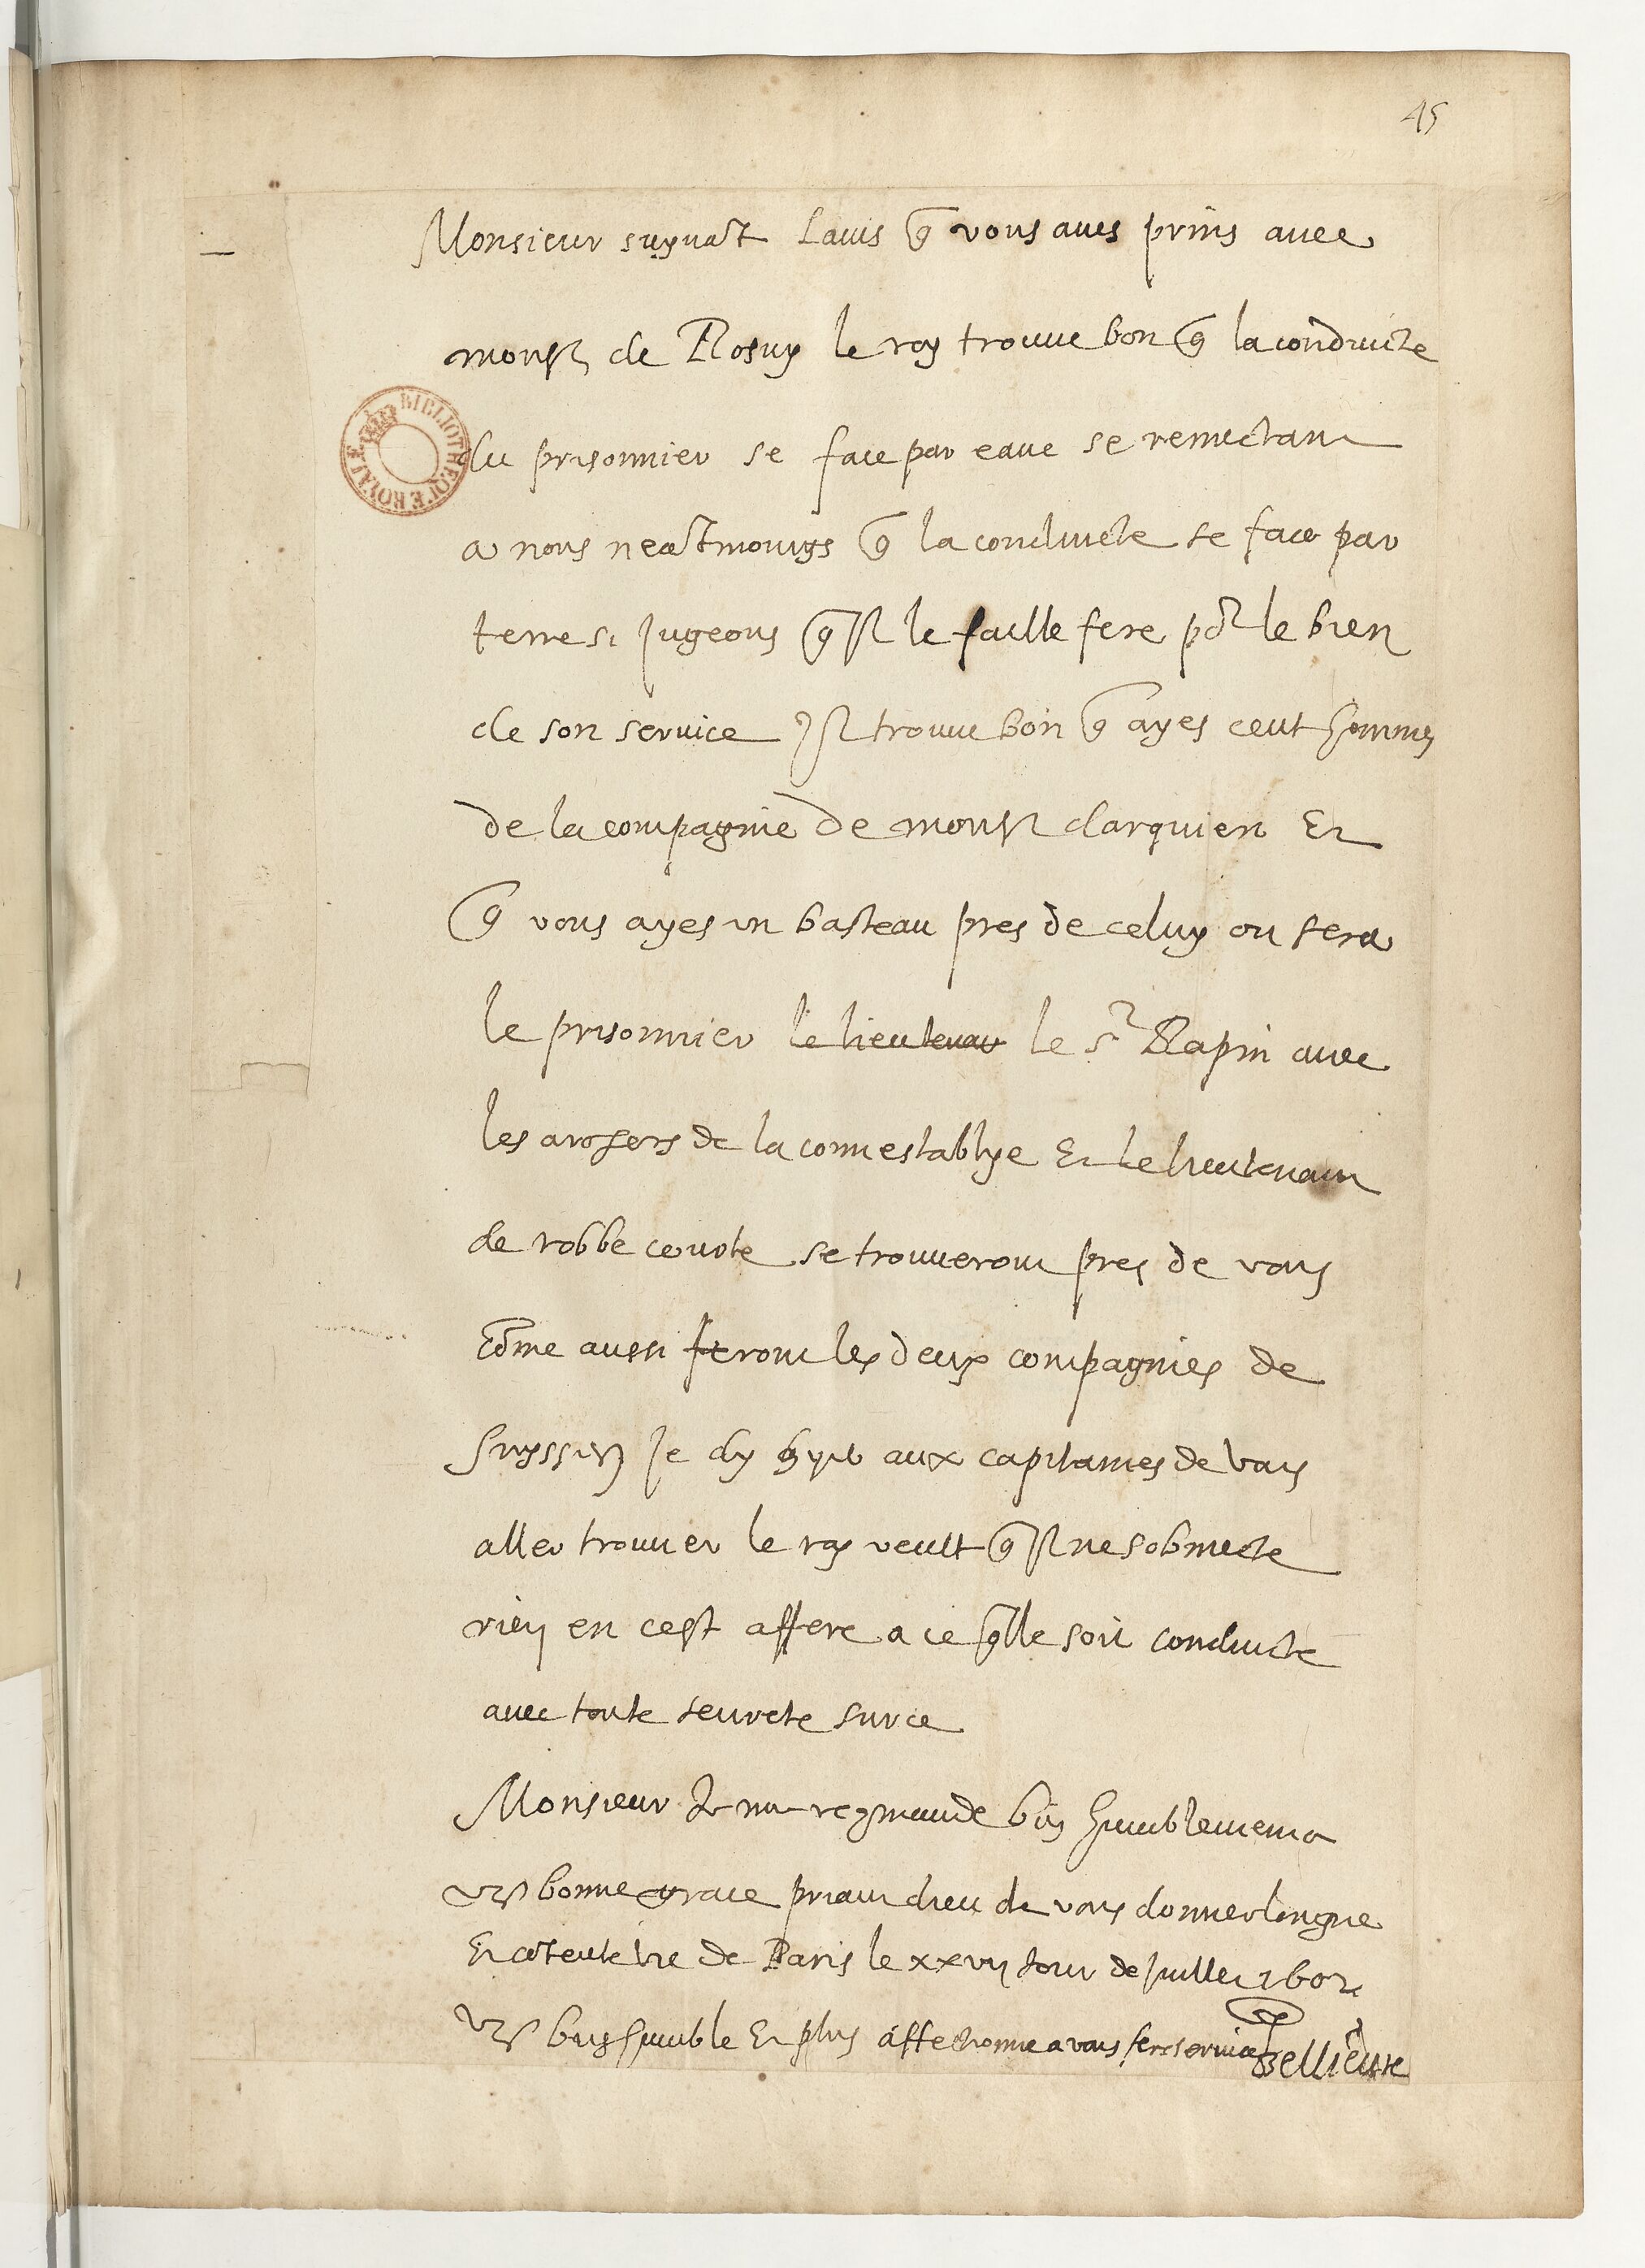 45
Monsieur suyvat lavis q vous aves prins avec
monsr de Rosny le roy trouve bon q la conduicte
BIBLIOTHEQUE ROYALE
du prisonnier se face par eaue se remectant
a nous neatmoings q la conduicte se face par
terre si jugeons qil le faille fere por le bien
de son service Il trouve bon q ayes cent hommes
de la compagnie de monsr darquien Et
q vous ayes un basteau pres de celuy ou sera
le prisonnier le lieutenant le sr Rapin avec
les archers de la connestablye Et le lieutenant
de robbe courte se trouveront pres de vous
Come aussi feront les deux compagnies de
suysses Je dy aux capitaines de vous
aller trouver le roy veult qil ne sobmecte
rien en cest affere a ce qlle soit conduicte
avec toute seurete sur ce
Monsieur Je me recomande bien humblement a
vre bonne grace priant dieu de vous donner longue
Et cotente vie de Paris le xxvii jour de juillet 1602
vre bien humble Et plus affectionne a vous fere service
Bellievre